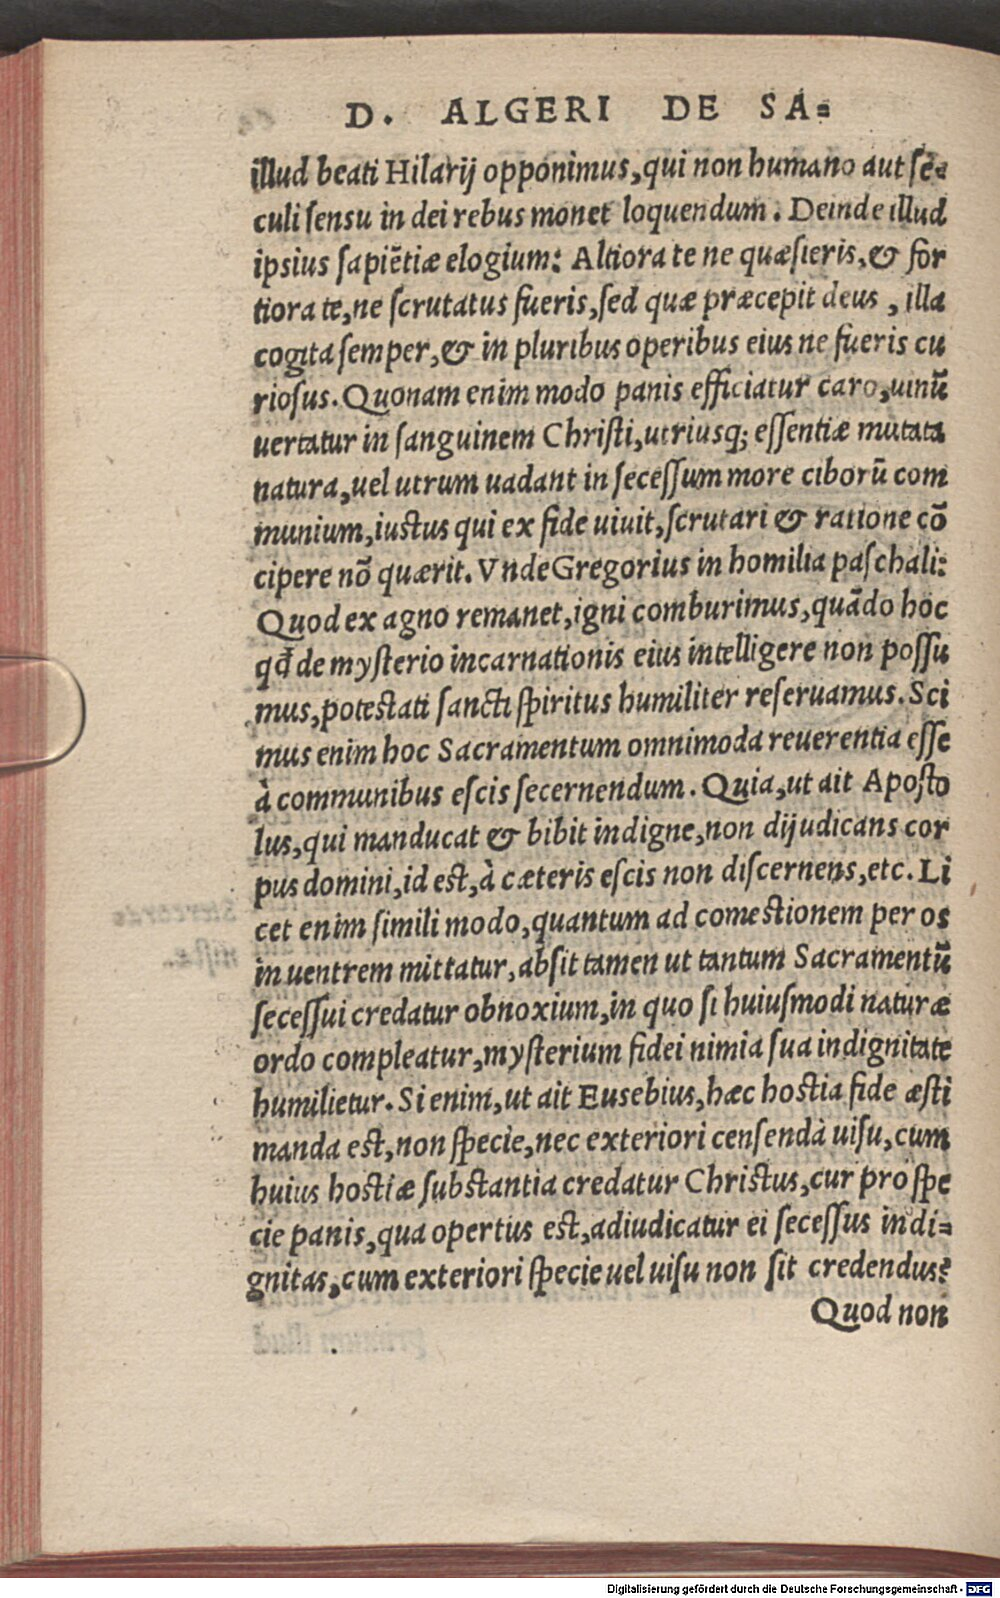 D. ALGERI DE SA=
illud beati Hilarij opponimus, qui non humano aut se=
culi sensu in dei rebus monet loquendum. Deinde illud
ipsius sapiẽtiæ elogium: Altiora te ne quæsieris, & for
tiora te, ne scrutatus fueris, sed quæ præcepit deus, illa
cogita semper, & in pluribus operibus eius ne fueris cu
riosus. Quonam enim modo panis efficiatur caro, uinũ
uertatur in sanguinem Christi, utriusq; essentiæ mutata
natura, uel utrum uadant in secessum more ciborũ com
munium, iustus qui ex fide uiuit, scrutari & ratione cõ
cipere nõ quærit. Vnde Gregorius in homilia paschali:
Quod ex agno remanet, igni comburimus, quãdo hoc
qđ de mysterio incarnationis eius intelligere non possu
mus, potestati sancti spiritus humiliter reseruamus. Sci
mus enim hoc Sacramentum omnimoda reuerentia esse
à communibus escis secernendum. Quia, ut ait Aposto
lus, qui manducat & bibit indigne, non dijudicans cor
pus domini, id est, à cæteris escis non discernens, etc. Li
cet enim simili modo, quantum ad comestionem per os
in uentrem mittatur, absit tamen ut tantum Sacramentũ
secessui credatur obnoxium, in quo si huiusmodi naturæ
ordo compleatur, mysterium fidei nimia sua indignitate
humilietur. Si enim, ut ait Eusebius, hæc hostia fide æsti
manda est, non specie, nec exteriori censenda uisu, cum
huius hostiæ substantia credatur Christus, cur pro spe
cie panis, qua opertus est, adiudicatur ei secessus indi=
gnitas, cum exteriori specie uel uisu non sit credendus?
Quod non
Digitalisierung gefördert durch die Deutsche Forschungsgemeinschaft - DFG